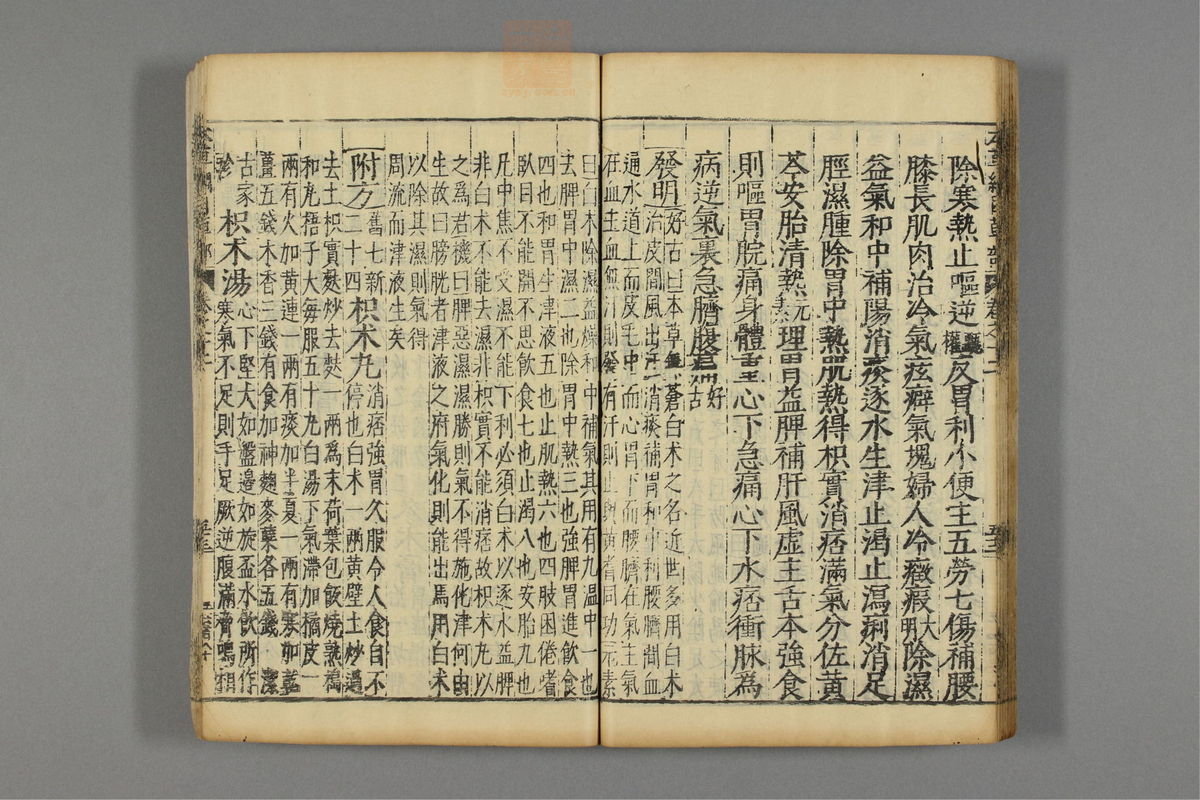 除寒熱止嘔逆甄權反胃利小便主五勞七傷補腰
膝長肌肉治冷氣痃癖氣塊婦人冷癥瘕大明除濕
益氣和中補陽消痰逐水生津止渴止瀉痢消足
脛濕腫除胃中熱肌熱得枳實消痞滿氣分佐黃
芩安胎清熱元素理胃益脾補肝風虛主舌本強食
則嘔胃脘痛身體重心下急痛心下水痞衝脉為
病逆氣裏急臍腹痛好古
發明好古曰本草無蒼白朮之名近世多用白朮
治皮間風出汗消痰補胃和中利腰臍間血
通水道上而皮毛中而心胃下而腰臍在氣主氣
在血主血無汗則發有汗則止與黃耆同功元素
曰白朮除濕益燥和中補氣其用有九溫中一也
去脾胃中濕二也除胃中熱三也強脾胃進飲食
四也和胃生津液五也止肌熱六也四肢困倦嗜
臥目不能開不思飲食七也止渴八也安胎九也
凡中焦不受濕不能下利必須白朮以逐水益脾
非白朮不能去濕非枳實不能消痞故枳朮丸以
之為君機曰脾惡濕濕勝則氣不得施化津何由
生故曰膀胱者津液之府氣化則能出焉用白朮
以除其濕則氣得
周流而津液生矣
附方舊七新二十四枳朮丸消痞強胃久服令人食自不
停也白朮一兩黃壁土炒過
去土枳實麩炒去麩一兩為末荷葉包飯燒熟搗
和丸梧子大每服五十丸白湯下氣滯加橘皮一
兩有火加黃連一兩有痰加半夏一兩有寒加乾
薑五錢木香三錢有食加神麴麥蘖各五錢潔
古家珍枳朮湯心下堅大如盤邊如旋盃水飲所作
寒氣不足則手足厥逆腹滿脅鳴相